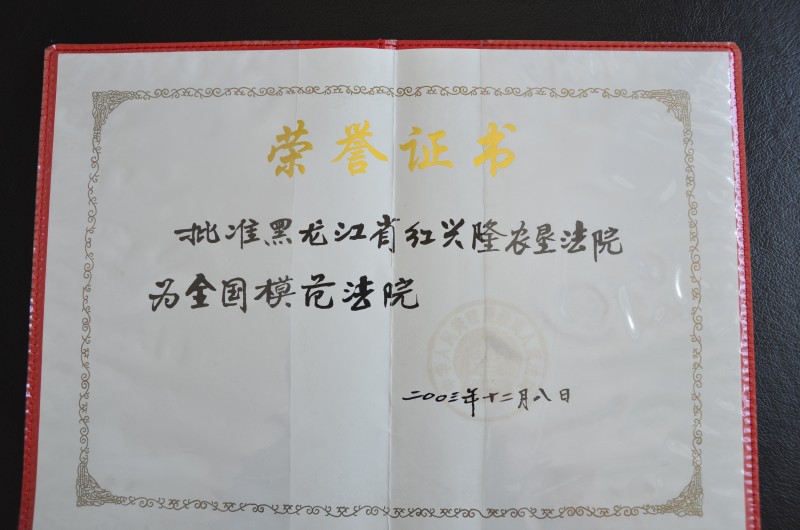 荣誉证书
批准黑龙江省红兴隆农垦法院
为全国模范法院
二00三年十二月八日